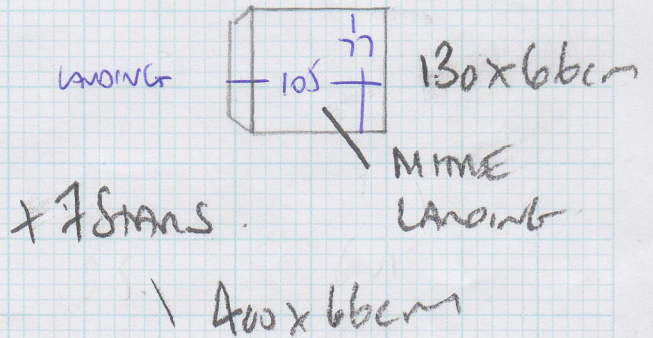 77
LANDING 105 130x66cm
MITRE
LANDING
+ 7 STAIRS
400x66cm